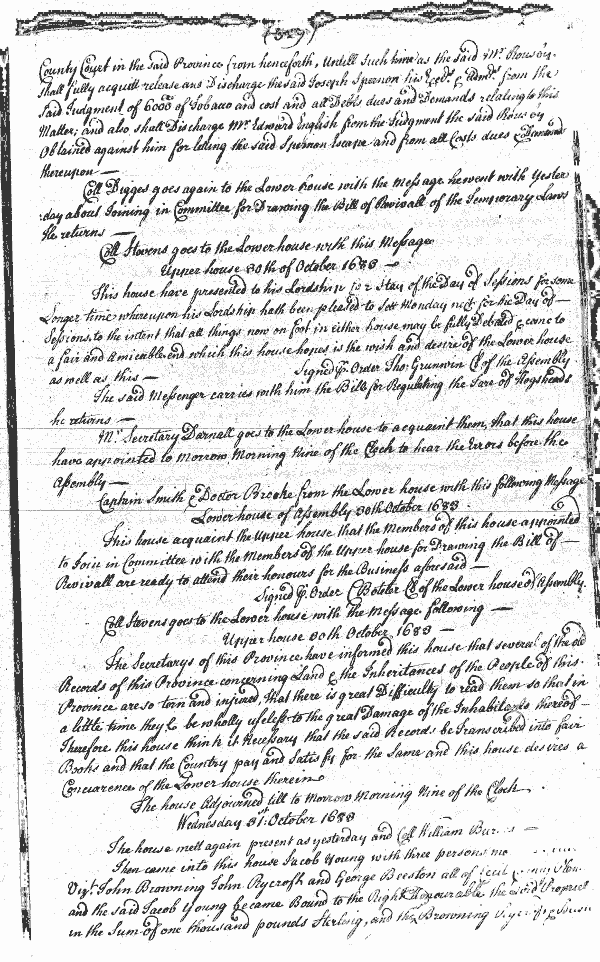 (519)
County Court in the said Province from henceforth, Untill Such time as the said Mr. Rousby
shall fully acquitt release and Discharge the said Joseph Spernon his Exrs. & Admrs. from the
Said Judgment of 6000 of Tobacco and cost and all Debts dues and Demands relating to this
Matter; and also shall Discharge Mr. Edward English from the Judgment the said Rousby
Obtained against him for leting the said Spernon Escape and from all Costs dues & Demands
thereupon —
Coll Digges goes again to the Lower house with the Message he went with Yester
day about Joining in Committee for Drawing the Bill of Revivall of the Temporary Laws
He returns —
Coll Stevens goes to the Lower house with this Message
Upper house 30th of October 1683 —
This house have presented to his Lordship for a Stay of the Day of Sessions for some
Longer time whereupon his Lordship hath been pleased to Sett Monday next for the Day of —
Sessions to the intent that all things now on foot in either house may be fully Debated & came to
a fair and Amicable end which this house hopes is the wish and desire of the Lower house
as well as this — Signed p. Order Tho: Grunwin Cl of the Assembly
The said Messenger carries with him the Bill for Regulating the Tare of Hogsheads
he returns —
Mr. Secretary Darnall goes to the Lower house to acquaint them, that this house
have appointed to Morrow Morning Nine of the Clock to hear the Errors before the
Assembly —
Captain Smith & Doctor Brooke from the Lower house with this following Message
Lower house of Assembly 30th October 1683
This house acquaint the Upper house that the Members of this house appointed
to Joine in Committee with the Members of the Upper house for Drawing the Bill of —
Revivall are ready to attend their honours for the Business aforesaid —
Signed p. Order C Boteler Cl of the Lower house of Assembly.
Coll Stevens goes to the Lower house with the Message following —
Upper house 30th October 1683 —
The Secretarys of this Province have informed this house that severall of the old
Records of this Province concerning Land & the Inheritances of the People of this
Province are so torn and injured, that there is great Difficulty to read them so that in
a little time they'l be wholly useless to the great Damage of the Inhabitants thereof —
Therefore this house think it Necessary that the said Records be Transcribed into fair
Books and that the Country pay and Satisfy for the Same and this house desires a
Concurrence of the Lower house therein
The house Adjourned till to Morrow Morning Nine of the Clock
Wednesday 31st October 1683
The house mett again present as yesterday and Coll William
Then came into this house Jacob Young with three persons
Vizt. John Browning John Rycroft and George Beeston all of Cecil County
and the said Jacob Young became Bound to the Right Honourable the Lord Propriet
in the Sum of one thousand pounds Sterling, and the Browning Rycroft